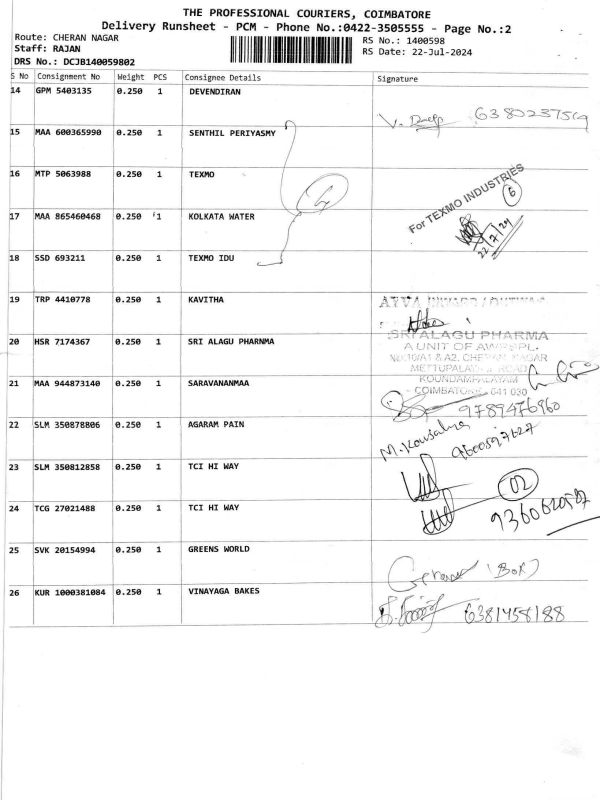 THE PROFESSIONAL COURIERS, COIMBATORE
Delivery Runsheet - PCM - Phone No.:0422-3505555 - Page No.:2
Route: CHERAN NAGAR
RS No.: 1400598
Staff: RAJAN
RS Date: 22-Jul-2024
DRS No.: DCJB140059802
S No Consignment No Weight PCS Consignee Details Signature
14 GPM 5403135 0.250 1 DEVENDIRAN
15 MAA 600365990 0.250 1 SENTHIL PERIYASMY
16 MTP 5063988 0.250 1 TEXMO
For TEXMO INDUSTRIES
6
17 MAA 865460468 0.250 1 KOLKATA WATER
22/7/24
18 SSD 693211 0.250 1 TEXMO IDU
19 TRP 4410778 0.250 1 KAVITHA
20 HSR 7174367 0.250 1 SRI ALAGU PHARNMA
SRI ALAGU PHARMA
A UNIT OF
COIMBATORE - 641 030
21 MAA 944873140 0.250 1 SARAVANANMAA
9789476960
22 SLM 350878806 0.250 1 AGARAM PAIN
M. Kousalya
9600597627
23 SLM 350812858 0.250 1 TCI HI WAY
02
24 TCG 27021488 0.250 1 TCI HI WAY
25 SVK 20154994 0.250 1 GREENS WORLD
(Box)
26 KUR 1000381084 0.250 1 VINAYAGA BAKES
6381458188